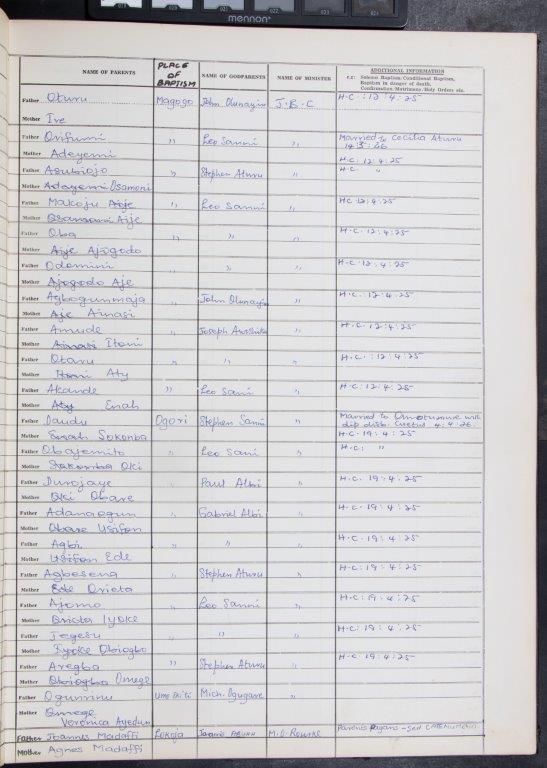 mennon
NAME OF PARENTS PLACE OF BAPTISM NAME OF GODPARENTS NAME OF MINISTER ADDITIONAL INFORMATION
e.g: Solemn Baptism: Conditional Baptism,
Baptism in danger of death,
Confirmation: Matrimony: Holy Orders etc.
Father Oturu Magogo John Olunayin J.B.C H.C. :12:4:25
Mother Ire
Father Orifumi ,, Leo Sanni ,, Married to Cecilia Aturu
Mother Adeyemi H.C. 12:4:25
Father Asubiojo ,, Stephen Aturu ,, H.C. ,,
Mother Adeyemi Osamoni
Father Makoju Aije ,, Leo Sanni ,, HC 12:4:25
Mother Osamoni Aije
Father Oba ,, ,, ,, H.C. 12:4:25
Mother Aije Ajogodo
Father Odomini ,, ,, ,, H.C. 12:4:25
Mother Ajogodo Aje
Father Agbogunmaja ,, John Olunayin ,, H.C. :12:4:25
Mother Aje Ainasi
Father Amude ,, Joseph ,, H.C. 12:4:25
Mother Ainasi Itoni
Father Otaru ,, ,, ,, H.C. :12:4:25
Mother Itoni Aty
Father Akande ,, Leo Sani ,, H.C: 12:4:25
Mother Aty Enah
Father Daudu Ogori Stephen Sanni ,, Married to with
dip disb. Cuetus 4:4:26.
Mother Enah Sokonba H.C. 19:4:25
Father Obajemito ,, Leo Sani ,, H.C: ,,
Mother Sokonba Oki
Father Durojaye ,, Paul Albi ,, H.C. 19:4:25
Mother Oki Obare
Father Adanaogun ,, Gabriel Albi ,, H.C. 19:4:25
Mother Obare Usifon
Father Agbi ,, ,, ,, H.C. 19:4:25
Mother Usifon Ede
Father Agboseng ,, Stephen Aturu ,, H.C: 19:4:25
Mother Ede Orieta
Father Ajomo ,, Leo Sanni ,, H.C: 19:4:25
Mother Orieta Iyoke
Father Jegesu ,, ,, ,, H.C: 19:4:25
Mother Iyoke Oboogbo
Father Aregba ,, Stephen Aturu ,, H.C: 19:4:25
Mother Oboogbo Omege
Father Ogunrinu Umo Ekiti Mich. Ogugare ,,
Mother Omege
Veronica Ayedun
Father Joannes Madaffi Lokoja M.O. Rourke Parents Pagans
Mother Agnes Madaffi